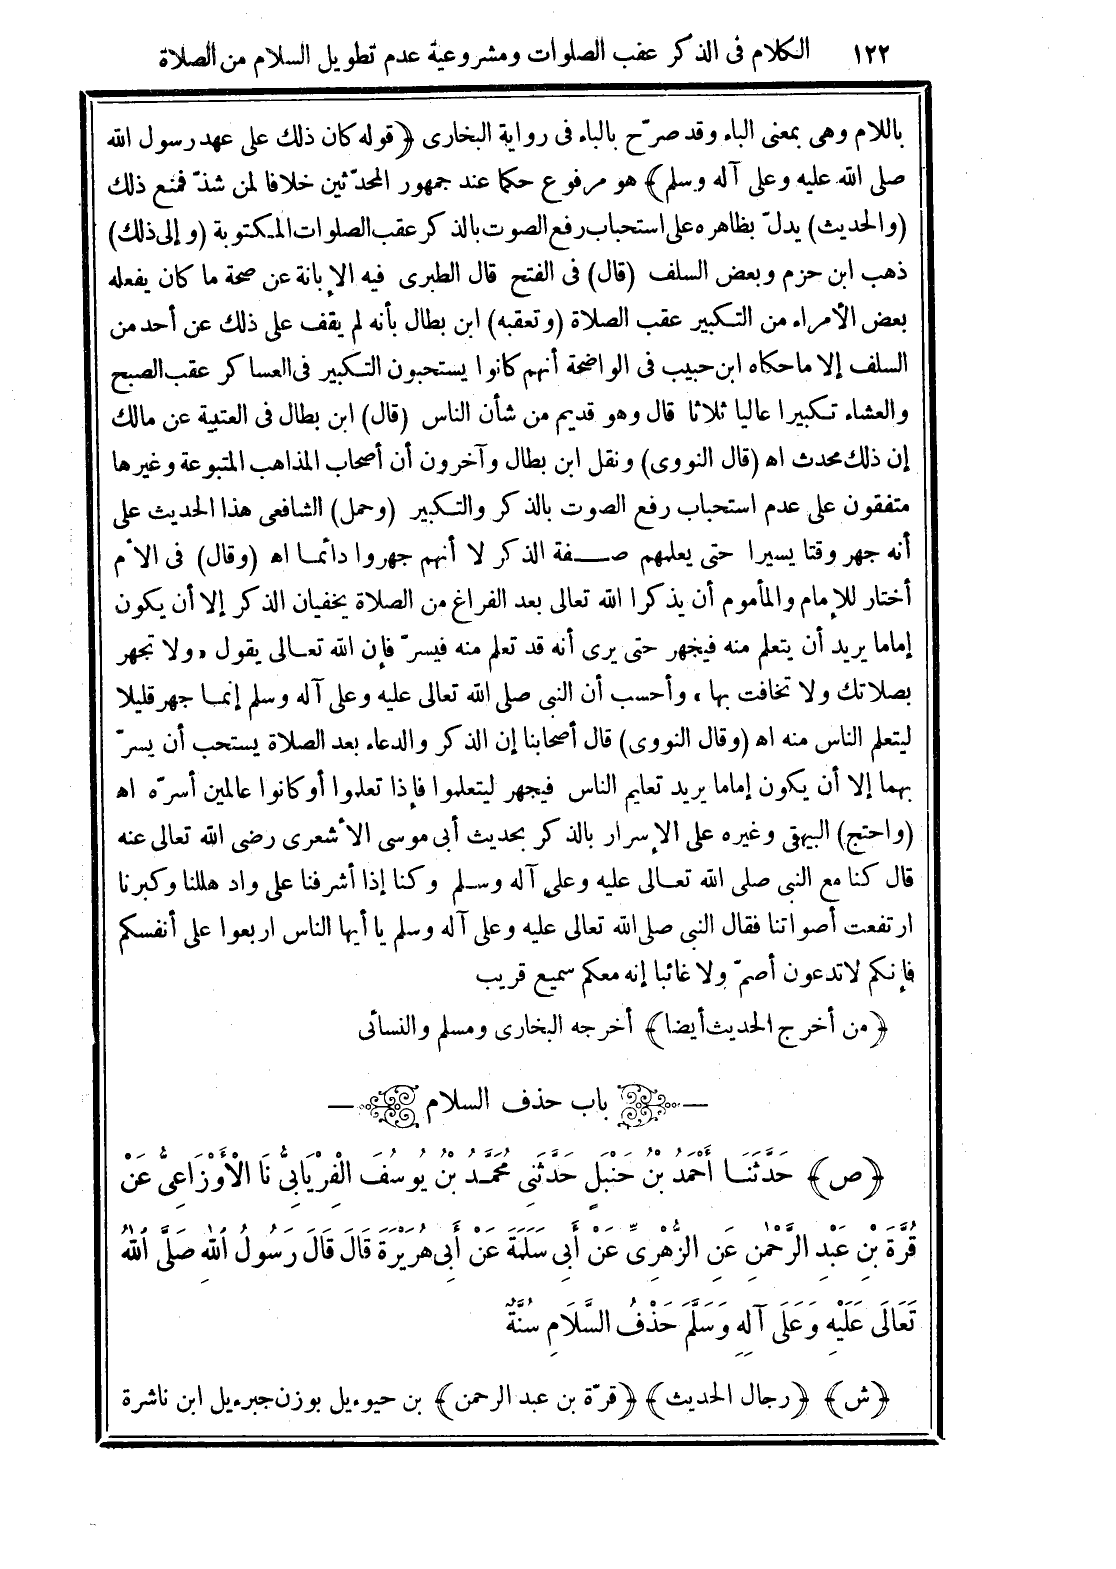 ١٢٢ الكلام فى الذكر عقب الصلوات ومشروعية عدم تطويل السلام من الصلاة
باللام وهى بمعنى الباء وقد صرّح بالباء فى رواية البخارى ﴿قوله كان ذلك على عهد رسول الله
صلى الله عليه وعلى آله وسلم﴾ هو مرفوع حكما عند جمهور المحدّثين خلافا لمن شذّ فمنع ذلك
(والحديث) يدلّ بظاهره على استحباب رفع الصوت بالذكر عقب الصلوات المكتوبة (وإلى ذلك)
ذهب ابن حزم وبعض السلف (قال) فى الفتح قال الطبرى فيه الإبانة عن صحة ما كان يفعله
بعض الأمراء من التكبير عقب الصلاة (وتعقبه) ابن بطال بأنه لم يقف على ذلك عن أحد من
السلف إلا ماحكاه ابن حبيب فى الواضحة أنهم كانوا يستحبون التكبير فى العساكر عقب الصبح
والعشاء تكبيرا عاليا ثلاثا قال وهو قديم من شأن الناس (قال) ابن بطال فى العتبية عن مالك
إن ذلك محدث اه (قال النووى) ونقل ابن بطال وآخرون أن أصحاب المذاهب المتبوعة وغيرها
متفقون على عدم استحباب رفع الصوت بالذكر والتكبير (وحمل) الشافعى هذا الحديث على
أنه جهر وقتا يسيرا حتى يعلمهم صفة الذكر لا أنهم جهروا دائما اه (وقال) فى الأم
أختار للإمام والمأموم أن يذكرا الله تعالى بعد الفراغ من الصلاة يخفيان الذكر إلا أن يكون
إماما يريد أن يتعلم منه فيجهر حتى يرى أنه قد تعلم منه فيسرّ فإن الله تعالى يقول «ولا تجهر
بصلاتك ولا تخافت بها» وأحسب أن النبي صلى الله تعالى عليه وعلى آله وسلم إنما جهر قليلا
ليتعلم الناس منه اه (وقال النووى) قال أصحابنا إن الذكر والدعاء بعد الصلاة يستحب أن يسرّ
بهما إلا أن يكون إماما يريد تعليم الناس فيجهر ليتعلموا فإذا تعلموا أوكانوا عالمين أسرّه اه
(واحتج) البيهقى وغيره على الإسرار بالذكر بحديث أبى موسى الأشعرى رضى الله تعالى عنه
قال كنا مع النبي صلى الله تعالى عليه وعلى آله وسلم وكنا إذا أشرفنا على واد هللنا وكبرنا
ارتفعت أصواتنا فقال النبي صلى الله تعالى عليه وعلى آله وسلم يا أيها الناس اربعوا على أنفسكم
فإنكم لاتدعون أصمّ ولا غائبا إنه معكم سميع قريب
﴿من أخرج الحديث أيضا﴾ أخرجه البخارى ومسلم والنسائى
باب حذف السلام
﴿ص﴾ حَدَّثَنَا أَحْمَدُ بْنُ حَنْبَلٍ حَدَّثَنِى مُحَمَّدُ بْنُ يُوسُفَ الْفِرْيَابِىُّ نَا الْأَوْزَاعِىُّ عَنْ
قُرَّةَ بْنِ عَبْدِ الرَّحْمٰنِ عَنِ الزُّهْرِىِّ عَنْ أَبِى سَلَمَةَ عَنْ أَبِى هُرَيْرَةَ قَالَ قَالَ رَسُولُ اللهِ صَلَّى اللهُ
تَعَالَى عَلَيْهِ وَعَلَى آلِهِ وَسَلَّمَ حَذْفُ السَّلَامِ سُنَّةٌ
﴿ش﴾ ﴿رجال الحديث﴾ ﴿قرّة بن عبد الرحمن﴾ بن حيوءيل بوزن جبرءيل ابن ناشرة